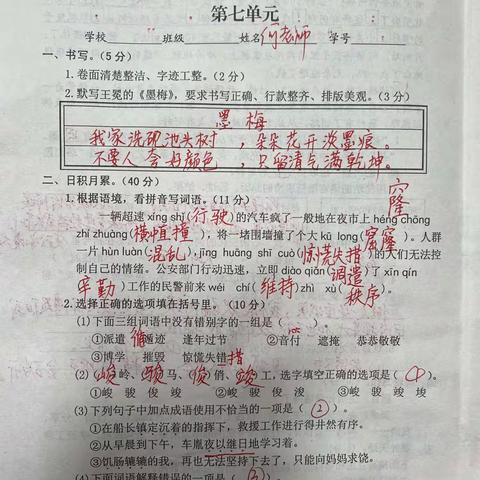 第七单元
学校 班级 姓名 何老师 学号
一、书写。(5分)
1.卷面清楚整洁、字迹工整。(2分)
2.默写王冕的《墨梅》，要求书写正确、行款整齐、排版美观。(3分)
墨梅
我家洗砚池头树，朵朵花开淡墨痕。
不要人夸好颜色，只留清气满乾坤。
二、日积月累。(40分)
1.根据语境，看拼音写词语。(11分)
窿
一辆超速xíng shǐ(行驶)的汽车疯了一般地在夜市上héng chōng
zhí zhuàng(横冲直撞)，将一堵围墙撞了个大kū long(窟窿)。人群
一片hùn luàn(混乱)，jīng huāng shī cuò(惊慌失措)的人们无法控
制自己的情绪。公安部门行动迅速，立即diào qiǎn(调遣)了xīn qín
(辛勤)工作的民警前来wéi chí(维持)zhì xù(秩序)。
2.选择正确的选项填在括号里。(10分)
(1)下面三组词语中没有错别字的一组是( )。
①派遣 循遁迹 逢年过节 ②音付 遮掩 恭恭敬敬
③博学 摧毁 惊慌失错措
(2)(峻)岭、(骏)马、(俊)俏、(竣)工，选字填空正确的选项是(①)。
①峻 骏 俊 竣 ②峻 俊 骏 竣 ③俊 骏 竣 峻
(3)下列句子中加点成语使用不恰当的一项是(②)。
①在船长镇定沉着的指挥下，救援工作进行得井然有序。
②从早晨到下午，车胤夜以继日地学习着。
③饥肠辘辘的我，再也无法坚持下去了，只能向妈妈求饶。
(4)下面词语解释错误的一项是(③)。